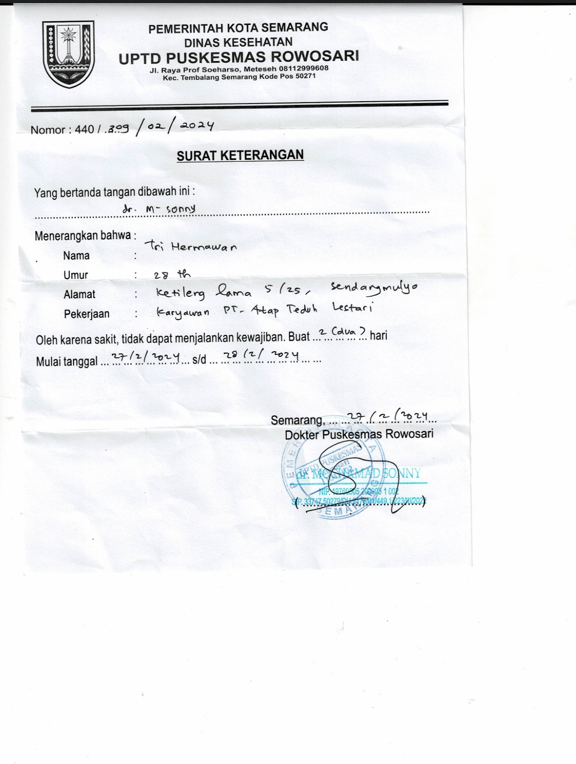 PEMERINTAH KOTA SEMARANG
DINAS KESEHATAN
UPTD PUSKESMAS ROWOSARI
Jl. Raya Prof Soeharso, Meteseh 08112999608
Kec. Tembalang Semarang Kode Pos 50271
Nomor : 440 / 309 / 02 / 2024
SURAT KETERANGAN
Yang bertanda tangan dibawah ini :
dr. M- Sonny
Menerangkan bahwa :
Nama : Tri Hermawan
Umur : 28 th
Alamat : Ketileng lama 5/25, Sendangmulyo
Pekerjaan : Karyawan PT- Atap Teduh Lestari
Oleh karena sakit, tidak dapat menjalankan kewajiban. Buat ... 2 (dua) ... hari
Mulai tanggal ... 27/2/2024 ... s/d ... 28/2/2024 ...
Semarang, ... 27/2/2024 ...
Dokter Puskesmas Rowosari
dr. MOCHAMAD SONNY